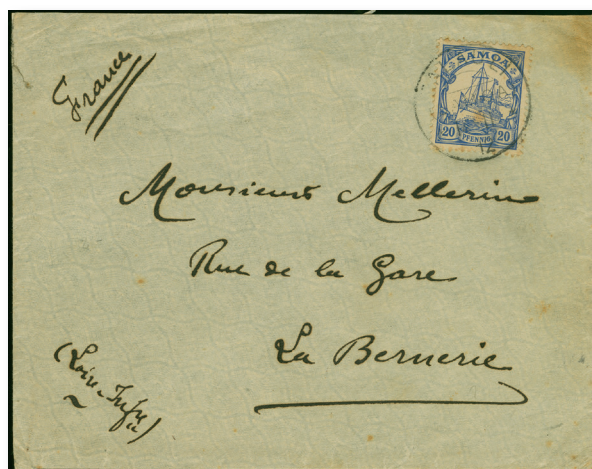 France
SAMOA
20 PFENNIG 20
Monsieur Mellerin
Rue de la Gare
La Bernerie
(Loire-Infre)